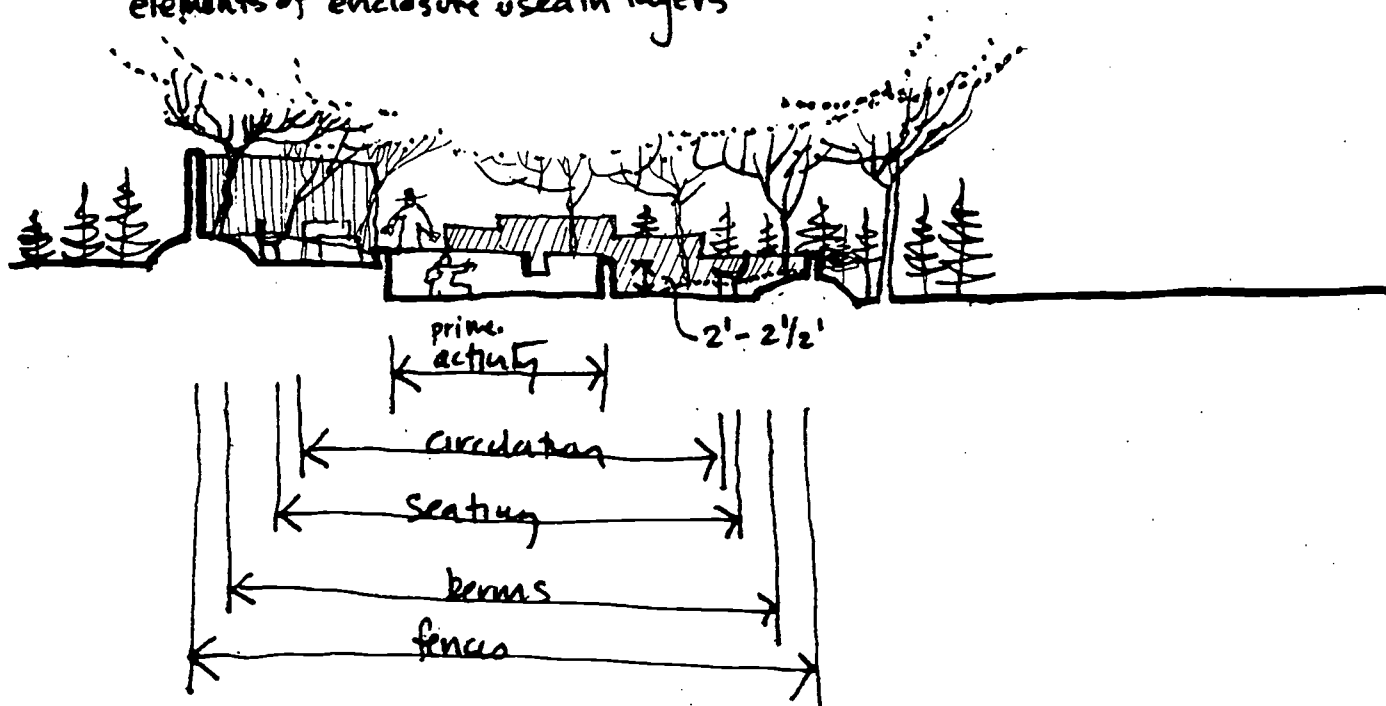 elements of enclosure used in layers
prime.
activity
2' - 2 1/2'
circulation
seating
berms
fences